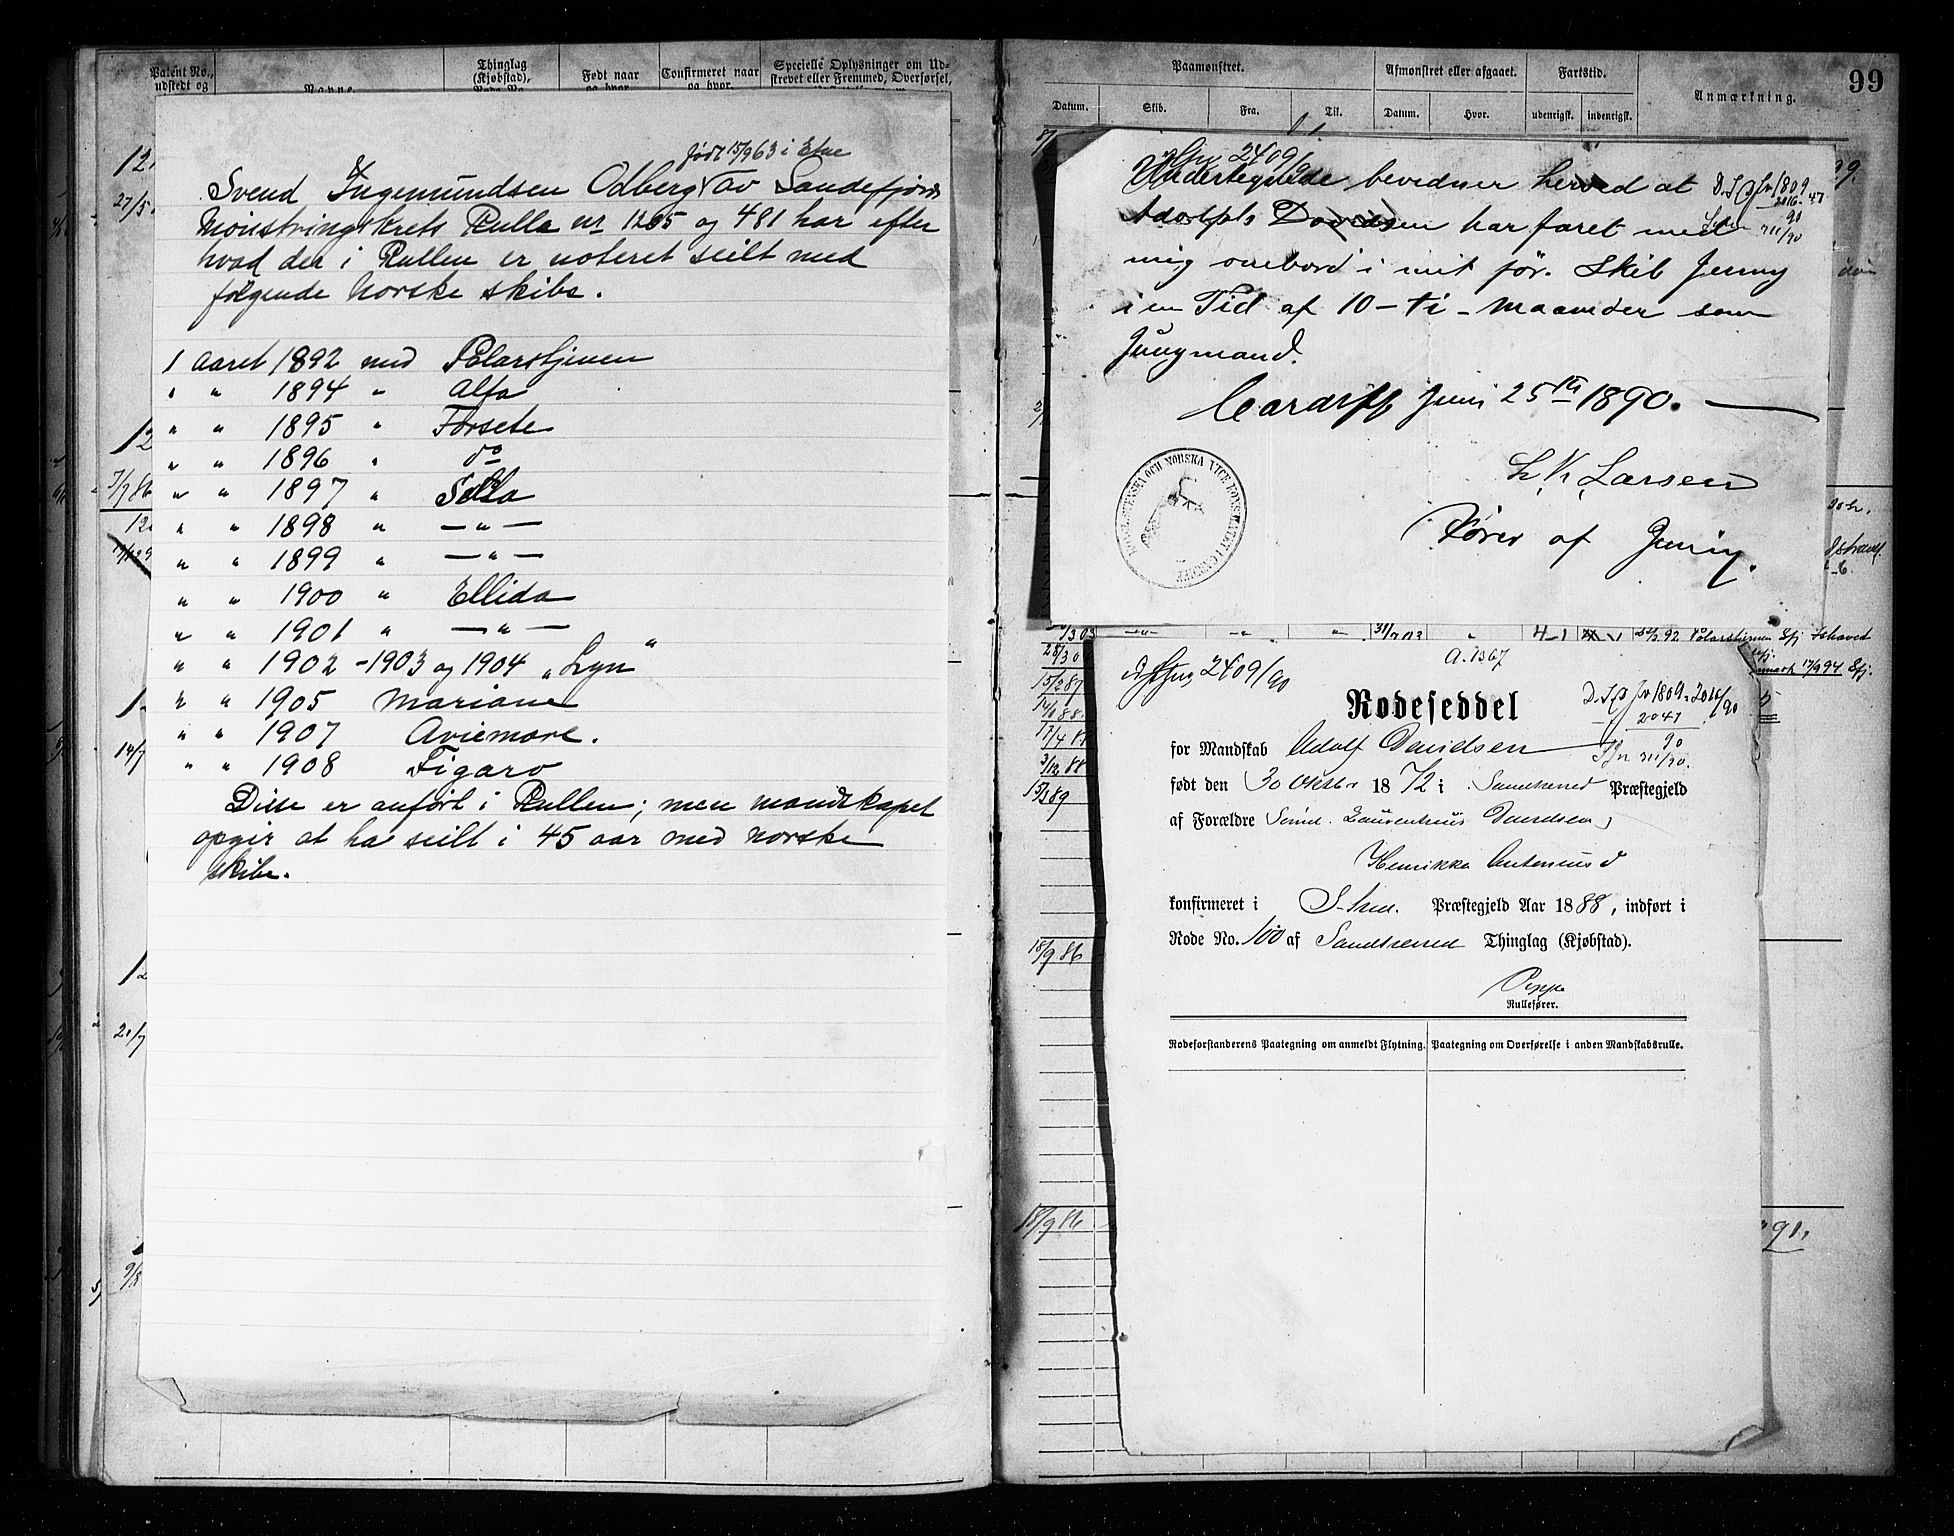 Patent No., udstedt og
Navne.
Thinglag (Kjøbstad),
Født naar og hvor.
Confirmeret naar og hvor.
Specielle Oplysninger om Udskrevet eller Fremmed, Overførsel,
født 15/9 63 i Etne
Svend Ingemundsen Odberg av Sandefjords
Mønstringskrets Rulle nr 1205 og 481 har efter
hvad der i Rullen er noteret seilt med
følgende norske skibe.
1 aaret 1892 med Polarstjernen
" " 1894 " Alfa
" " 1895 " Forsete
" " 1896 " do
" " 1897 " Sella
" " 1898 " — " —
" " 1899 " — " —
" " 1900 " Ellida
" " 1901 " — " —
" " 1902 - 1903 og 1904 "Lyn"
" " 1905 Mariane
" " 1907 Aviemore.
" " 1908 Figaro
Disse er anført i Rullen; men mandskapet
opgir at ha seilt i 45 aar med norske
skibe.
27/5
7/9 86
14/7
21/7
9/8
Paamønstret.
Afmønstret eller afgaaet.
Fartstid.
Anmærkning.
99
Datum.
Skib.
Fra.
Til.
Datum.
Hvor.
udenrigsk.
indenrigsk.
2409/90
Undertegnede bevedner herved at
D. S. p. Jn 1809
2016-47
90
711/90
Adolph Davidsen har faret med
mig ombord i mit før. Skib Jenny
i en Tid af 10 - ti - maaneder som
Jungmand.
Cardiff Juni 25th 1890.
L. K. Larsen
Fører af Jenny.
KONGL. SVENSKA OCH NORSKA VICE KONSULATET I CARDIFF
31/7 03
4-1
Polarstjernen Sfj. Ishavet
17/9 94 Sfj.
28/3 0
15/2 87
14/1 88
17/4 88
3/12 88
15/3 89
18/9 86
18/9 86
91.
A. 1367
2409/90
Rodeseddel
D. S. p. Jn 1809, 2016/90
2047
90
Jn 711/90.
for Mandskab Adolf Davidsen
født den 30 Oktbr 1872 i Sandeherred Præstegjeld
af Forældre Sømd. Laurentius Davidsen,
Henrikke Antonsd
konfirmeret i S-hrd. Præstegjeld Aar 1888, indført i
Rode No. 100 af Sandeherred Thinglag (Kjøbstad).
Oppe
Rullefører.
Rodeforstanderens Paategning om anmeldt Flytning.
Paategning om Overførelse i anden Mandskabsrulle.